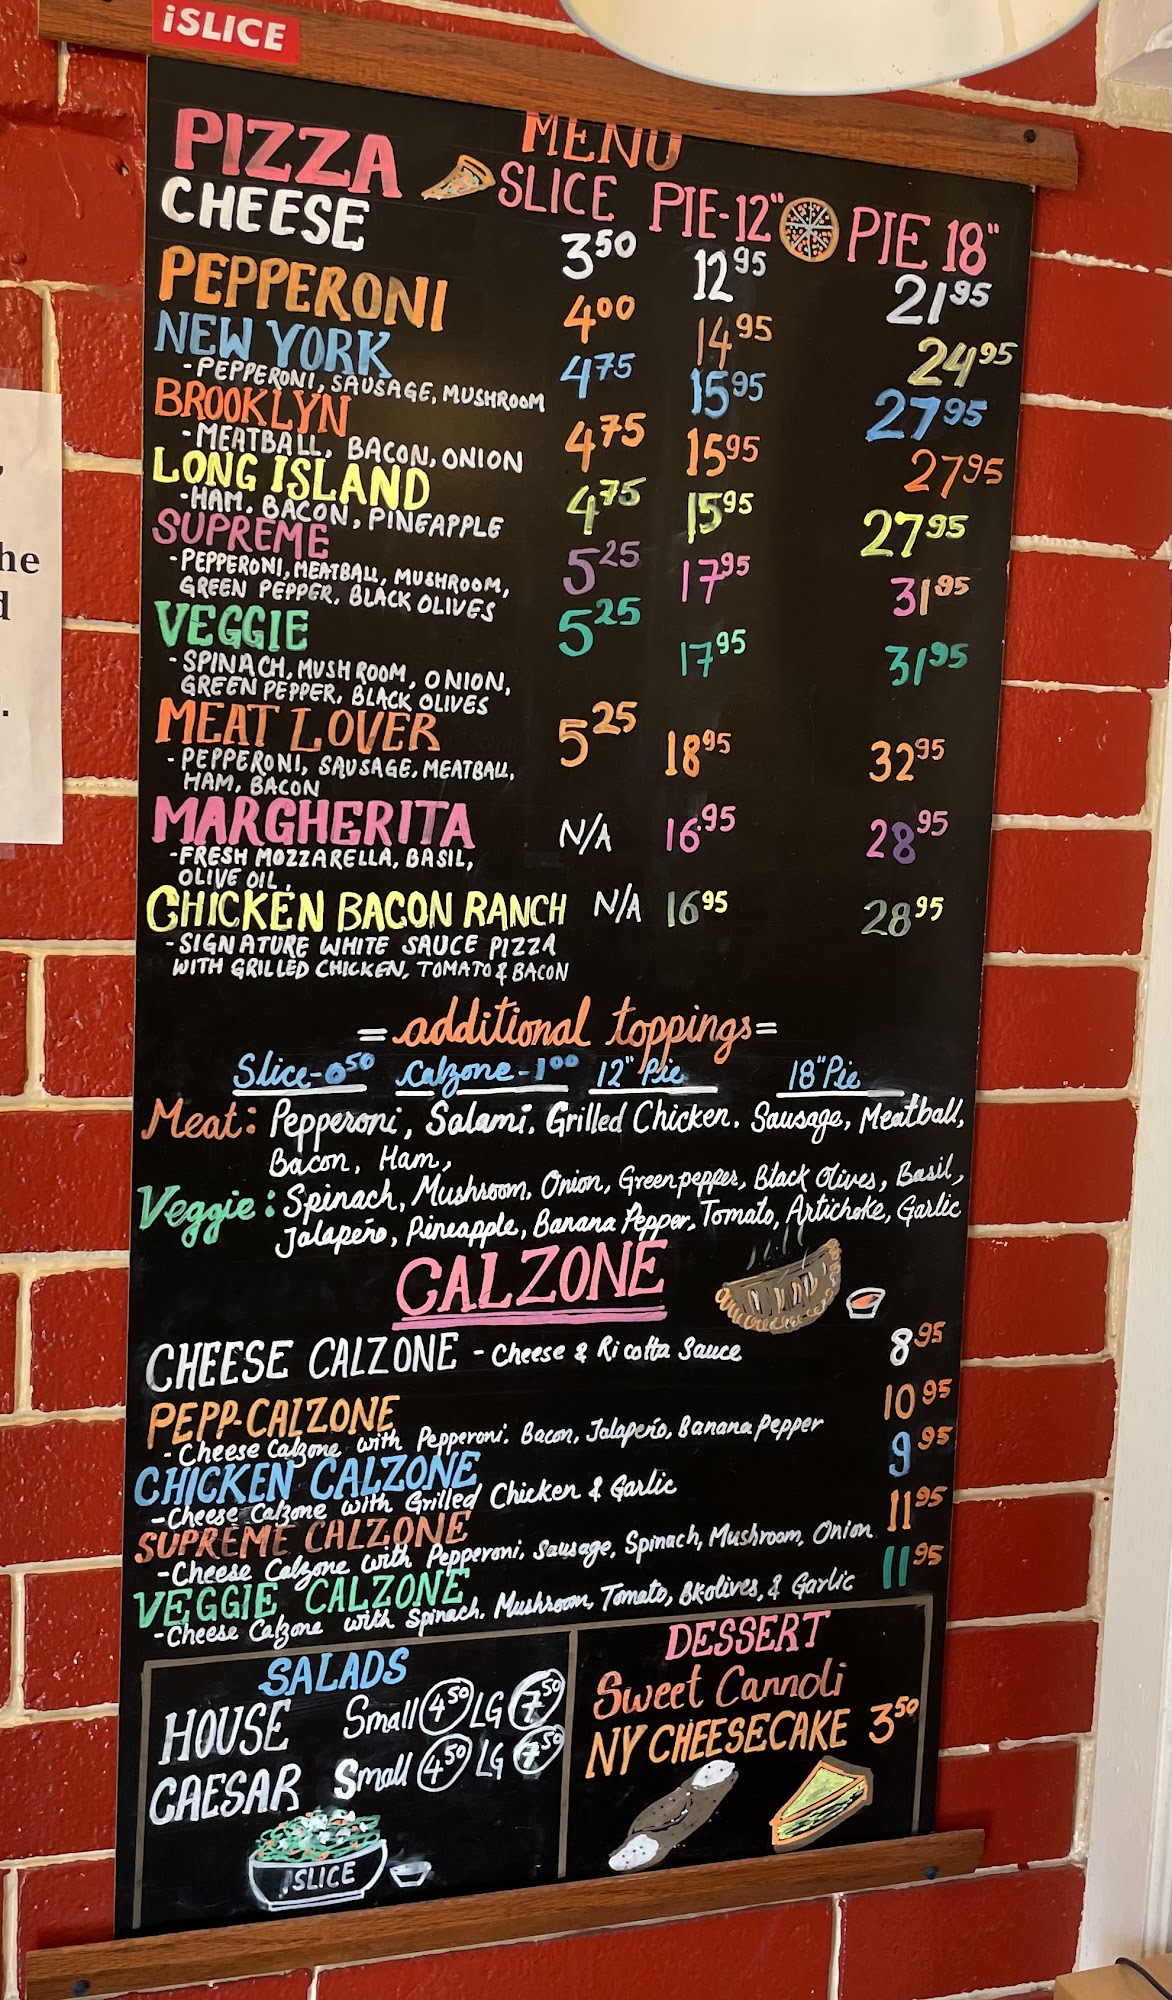 iSLICE
MENU
PIZZA SLICE PIE-12" PIE 18"
CHEESE 3.50 12.95 21.95
PEPPERONI 4.00 14.95 24.95
NEW YORK 4.75 15.95 27.95
-PEPPERONI, SAUSAGE, MUSHROOM
BROOKLYN 4.75 15.95 27.95
-MEATBALL, BACON, ONION
LONG ISLAND 4.75 15.95 27.95
-HAM, BACON, PINEAPPLE
SUPREME 5.25 17.95 31.95
-PEPPERONI, MEATBALL, MUSHROOM,
GREEN PEPPER, BLACK OLIVES
VEGGIE 5.25 17.95 31.95
-SPINACH, MUSHROOM, ONION,
GREEN PEPPER, BLACK OLIVES
MEAT LOVER 5.25 18.95 32.95
-PEPPERONI, SAUSAGE, MEATBALL,
HAM, BACON
MARGHERITA N/A 16.95 28.95
-FRESH MOZZARELLA, BASIL,
OLIVE OIL,
CHICKEN BACON RANCH N/A 16.95 28.95
-SIGNATURE WHITE SAUCE PIZZA
WITH GRILLED CHICKEN, TOMATO & BACON
=additional toppings=
Slice-0.50 Calzone-1.00 12" Pie 18" Pie
Meat: Pepperoni, Salami, Grilled Chicken, Sausage, Meatball,
Bacon, Ham,
Veggie: Spinach, Mushroom, Onion, Green pepper, Black Olives, Basil,
Jalapeño, Pineapple, Banana Pepper, Tomato, Artichoke, Garlic
CALZONE
CHEESE CALZONE - Cheese & Ricotta Sauce 8.95
PEPP-CALZONE 10.95
-Cheese Calzone with Pepperoni, Bacon, Jalapeño, Banana Pepper
CHICKEN CALZONE 9.95
-Cheese Calzone with Grilled Chicken & Garlic
SUPREME CALZONE 11.95
-Cheese Calzone with Pepperoni, Sausage, Spinach, Mushroom, Onion
VEGGIE CALZONE 11.95
-Cheese Calzone with Spinach, Mushroom, Tomato, Bk-olives, & Garlic
SALADS
HOUSE Small 4.50 LG 7.50
CAESAR Small 4.50 LG 7.50
iSLICE
DESSERT
Sweet Cannoli
NY CHEESECAKE 3.50
he
d